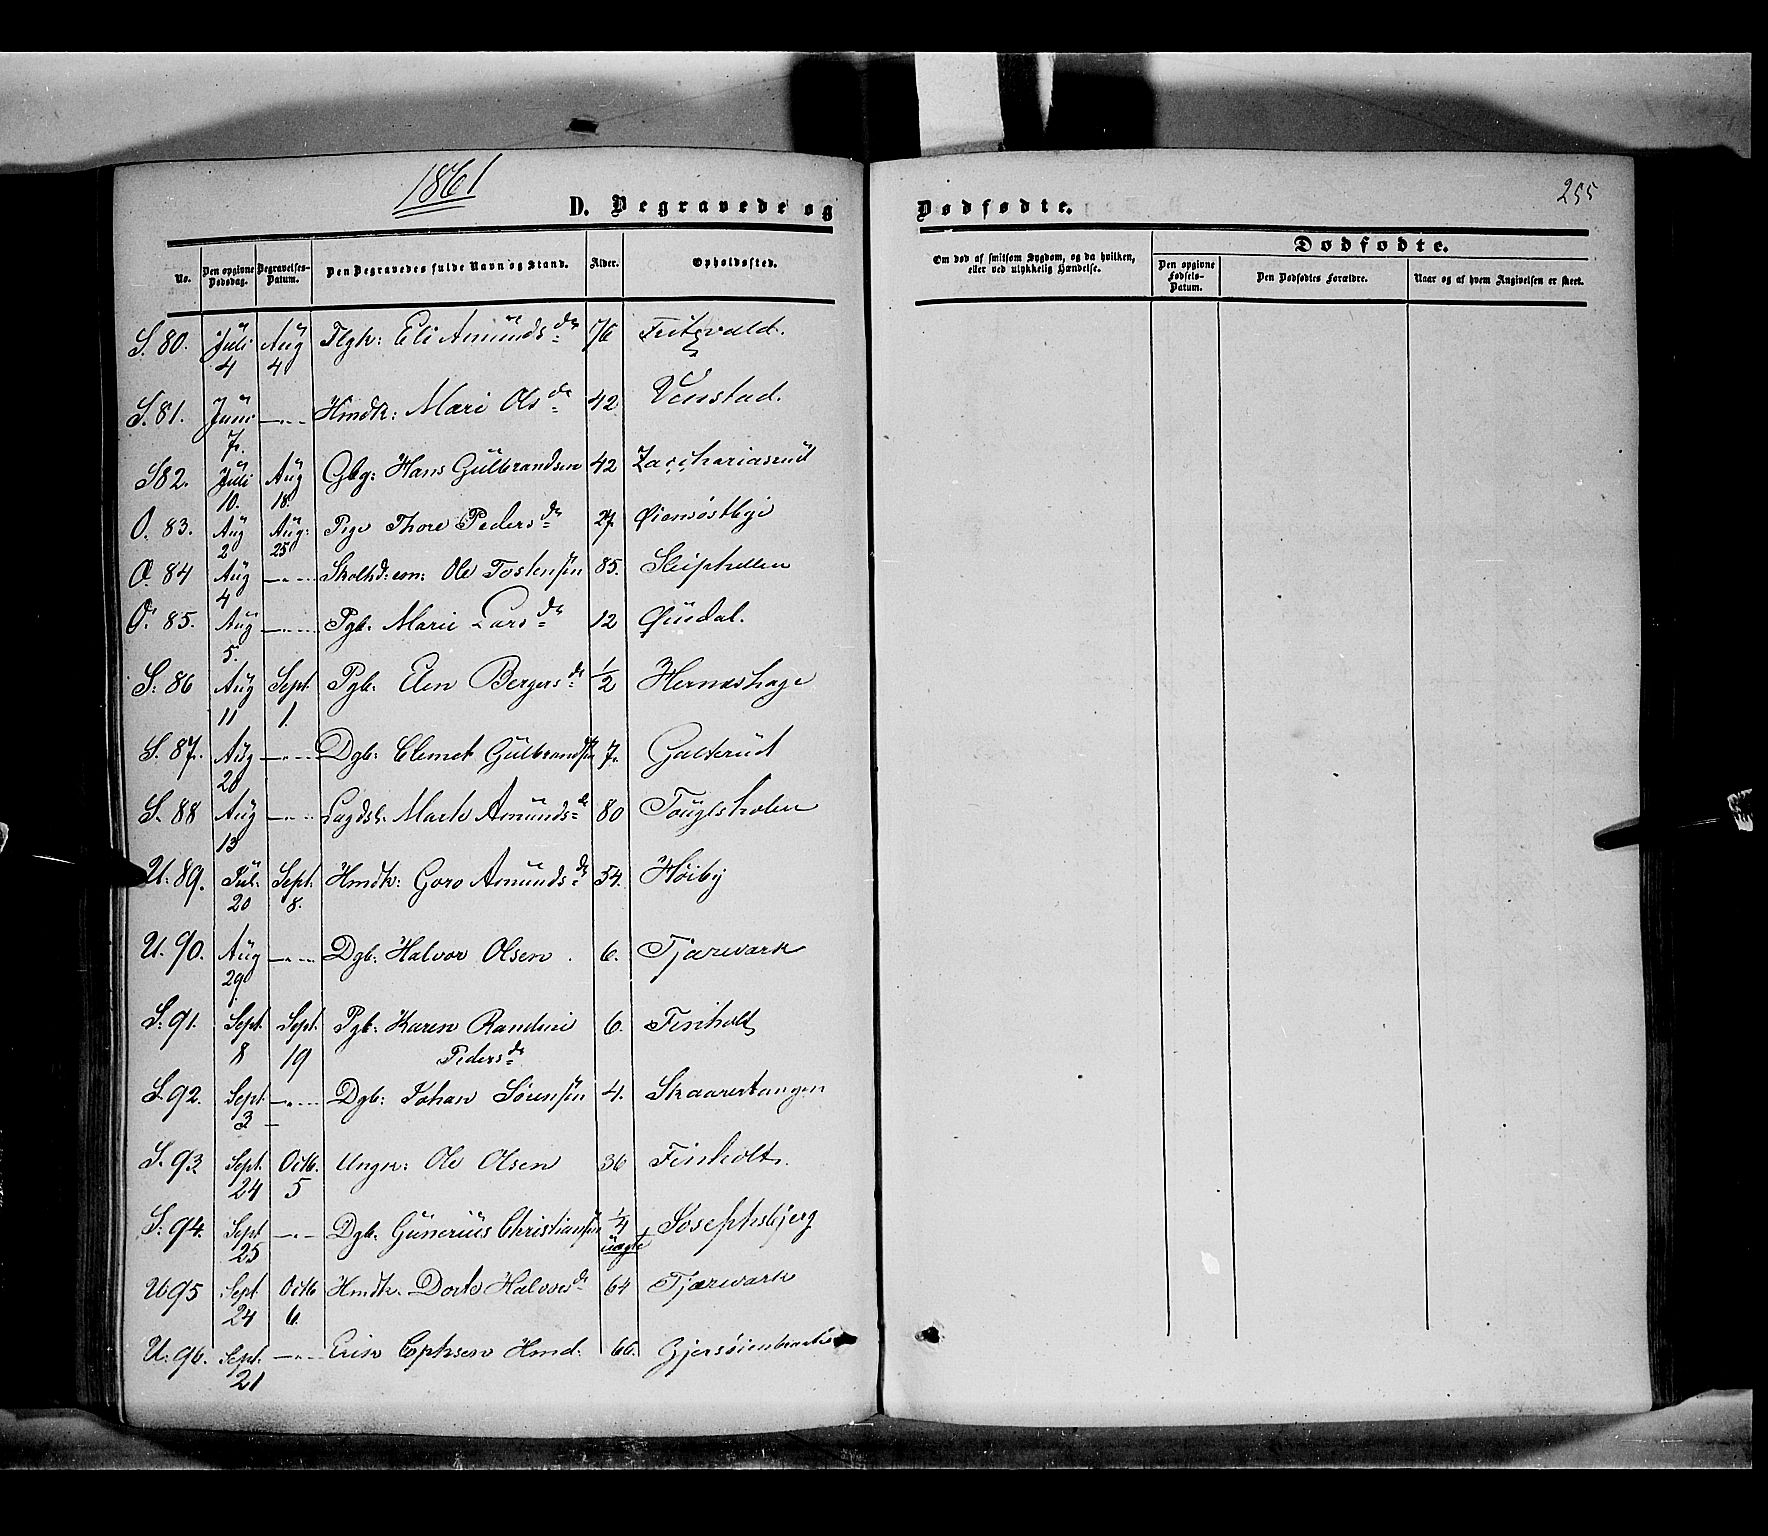 1861
D. Begravede og
Dødfødte.
255
No.
Den opgivne Dødsdag.
Begravelses-Datum.
Den Begravedes fulde Navn og Stand.
Alder.
Opholdssted.
Om død af smitsom Sygdom, og da hvilken, eller ved ulykkelig Hændelse.
Dødfødte.
Den opgivne Fødsels-Datum.
Den Dødfødtes Forældre.
Naar og af hvem Angivelsen er skeet.
S. 80. Juli 4 Aug 4 Flgk: Eli Amundsdr 76 Fritzvold.
S. 81. Juni 7. —"— Hmdk: Mari Olsdr 42 Venstad.
S 82. Juli 10. Aug 18. Gbg: Hans Gulbrandsen 42 Zacchariasrud
O. 83. Aug 2 Aug: 25 Pige Thore Pedersdr 27 Øiensøstbye
O. 84 Aug 4 —"— Ole Tostensen 85. Sleiphellen
O. 85. Aug 5. —"— Pgb. Marie Larsdr 12 Øiudal.
S. 86 Aug 11 Sept. 1. Pgb. Elen Bergersdr 1/2 Herneshage
S. 87. Aug 20 —"— Dgb: Clemet Gulbrandsen 7. Galterud
S. 88 Aug 13 —"— Lægdsl. Marte Amundsdr 80 Tougtsholen
U. 89. Jul. 20 Sept. 8. Hmdk: Goro Amundsdr 54. Høiby
U. 90. Aug 29 —"— Dgb: Halvor Olsen. 6. Tjærevark
S. 91. Sept. 8 Sept. 19 Pgb: Karen Randine Pedersdr 6. Finholt
S. 92. Sept 3 —"— Dgb: Johan Sørensen 4. Skaarertangen
S. 93 Sept. 24 Octb. 5 Ungk: Ole Olsen 36 Finholt.
S: 94. Sept 25 —"— Dgb: Gunerius Christiansen 1/4 uægte Josephsbjerg
U. 95 Sept 24 Octb 6. Hmdk. Dorte Halvorsdr 64 Tjærevark
U: 96. Sept. 21 —"— Erik Ephsen Hmd. 66.